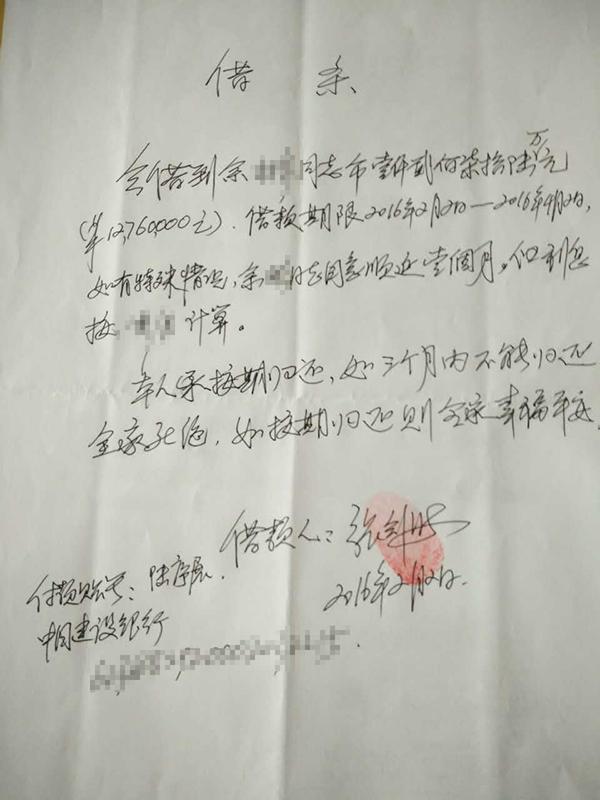 借条
今借到余 同志币壹仟 佰柒拾陆万元
(¥12,760,000元). 借款期限2016年2月2日—2016年4月2日,
如有特殊情况,余 同意顺延壹個月,但利息
按 计算。
本人承按期归还,如三个月内不能归还
全家死绝,如按期归还则全家幸福平安.
借款人:张
2016年2月2日.
付款账号:陆
中国建设银行